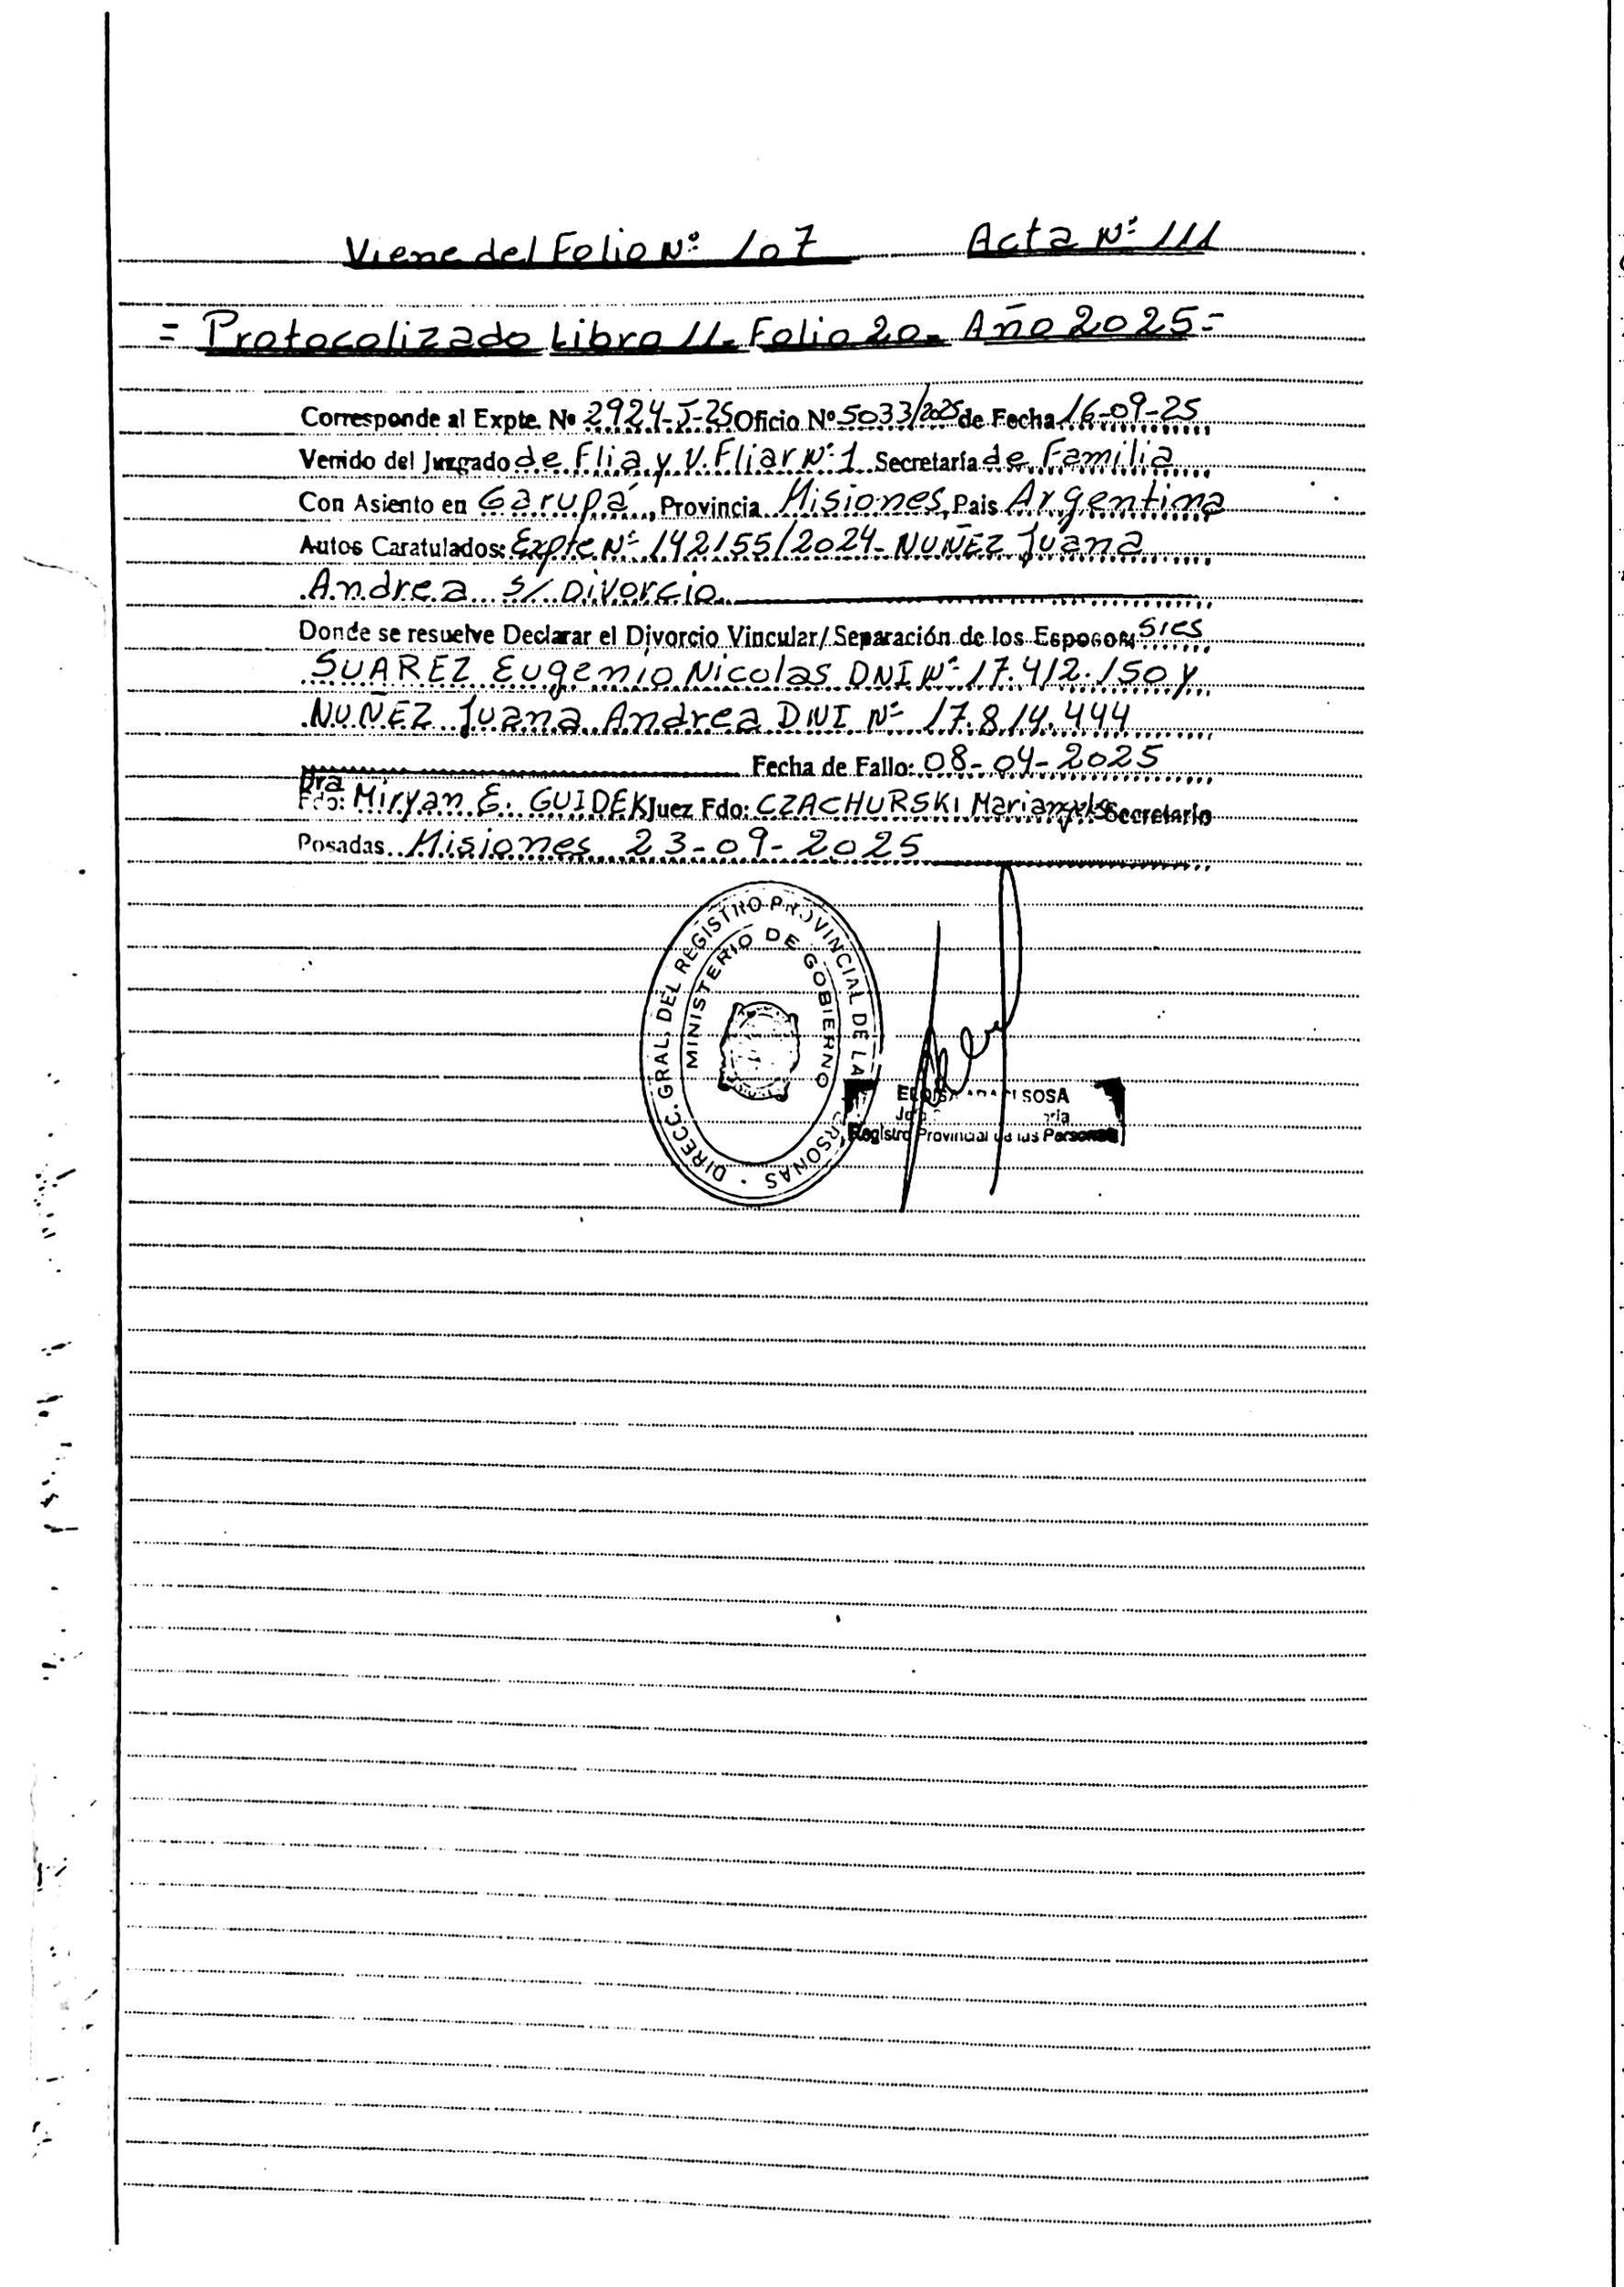 Viene del Folio Nº 107 Acta Nº 111
= Protocolizado Libro 11. Folio 20. Año 2025=
Corresponde al Expte. Nº 2924-J-25 Oficio Nº 5033/2025 de Fecha 16-09-25
Venido del Juzgado de Flia y V. Fliar Nº 1 Secretaría de Familia
Con Asiento en Garupá, Provincia Misiones, Pais Argentina
Autos Caratulados: Expte Nº 142155/2024- NUÑEZ Juana
Andrea s/ Divorcio
Donde se resuelve Declarar el Divorcio Vincular/Separación de los Esposos: Sres
SUAREZ Eugenio Nicolas DNI Nº 17.412.150 y
NUÑEZ Juana Andrea DNI Nº 17.814.444
Fecha de Fallo: 08-04-2025
Dra
Fdo: Miryan E. GUIDEK Juez Fdo: CZACHURSKI Mariangela Secretario
Posadas Misiones 23-09-2025
DIRECC. GRAL. DEL REGISTRO PROVINCIAL DE LA PERSONAS
MINISTERIO DE GOBIERNO
SOSA
Registro Provincial de las Personas